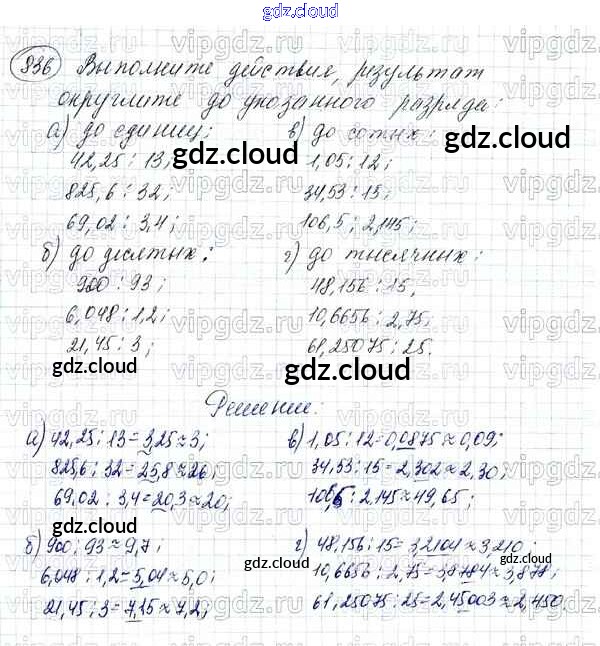 gdz.cloud
836 Выполните действия, результат
округлите до указанного разряда:
а) до единиц;
42,25 : 13;
825,6 : 32;
69,02 : 3,4;
б) до десятых:
900 : 93;
6,048 : 1,2;
21,45 : 3;
в) до сотых:
1,05 : 12;
34,53 : 15;
106,5 : 2,145;
г) до тысячных:
48,156 : 15,
10,6656 : 2,75.
61,25075 : 25.
Решение:
а) 42,25 : 13 = 3,25 ≈ 3;
825,6 : 32 = 25,8 ≈ 26;
69,02 : 3,4 = 20,3 ≈ 20;
б) 900 : 93 ≈ 9,7;
6,048 : 1,2 = 5,04 ≈ 5,0;
21,45 : 3 = 7,15 ≈ 7,2;
в) 1,05 : 12 = 0,0875 ≈ 0,09;
34,53 : 15 = 2,302 ≈ 2,30;
106,5 : 2,145 ≈ 49,65;
г) 48,156 : 15 = 3,2104 ≈ 3,210;
10,6656 : 2,75 = 3,8784 ≈ 3,878;
61,25075 : 25 = 2,45003 ≈ 2,450.